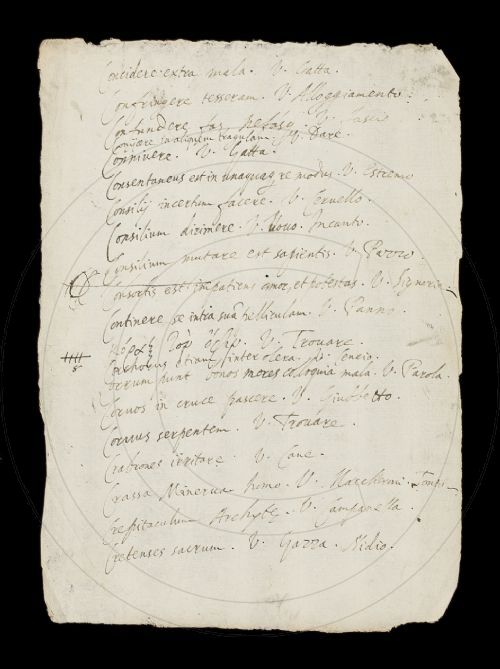 Concidere extra mala. V. Gatta.
Confringere tesseram. V. Alloggiamento.
Confundere fas nefasq. V.
Conijcere in aliquem tragulam. V. Dare.
Connivere. V. Gatta.
Consentaneus est in unaquaq re modus. V. Estremo
Consilij incertum facere. V. Cervello.
Consilium dirimere. V. Uovo. Incanto.
Consilium mutare est sapientis. V. Pazzo.
Consortis est impatiens amor, et potestas. V. Signoria.
Continere se intra suã pelliculam. V. Panno.
V. Trouare.
inter olera. V.
Corrumpunt bonos mores colloquia mala. V. Parola.
Coruos in cruce pascere. V. Giubbetto.
Coruus serpentem. V. Trouare.
Crabrones irritare. V. Cane.
Crassa Minerua homo. V. Maccheroni.
Crepitaculum Archytę. V. Campanella.
Cretenses sacrum. V. Gazza. Nidio.